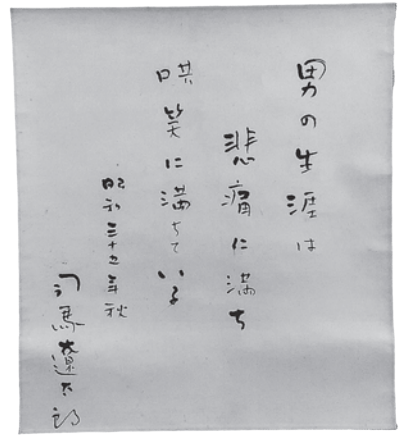 男の生涯は
悲痛に満ち
哄笑に満ちている
昭和三十五年秋
司馬遼太郎